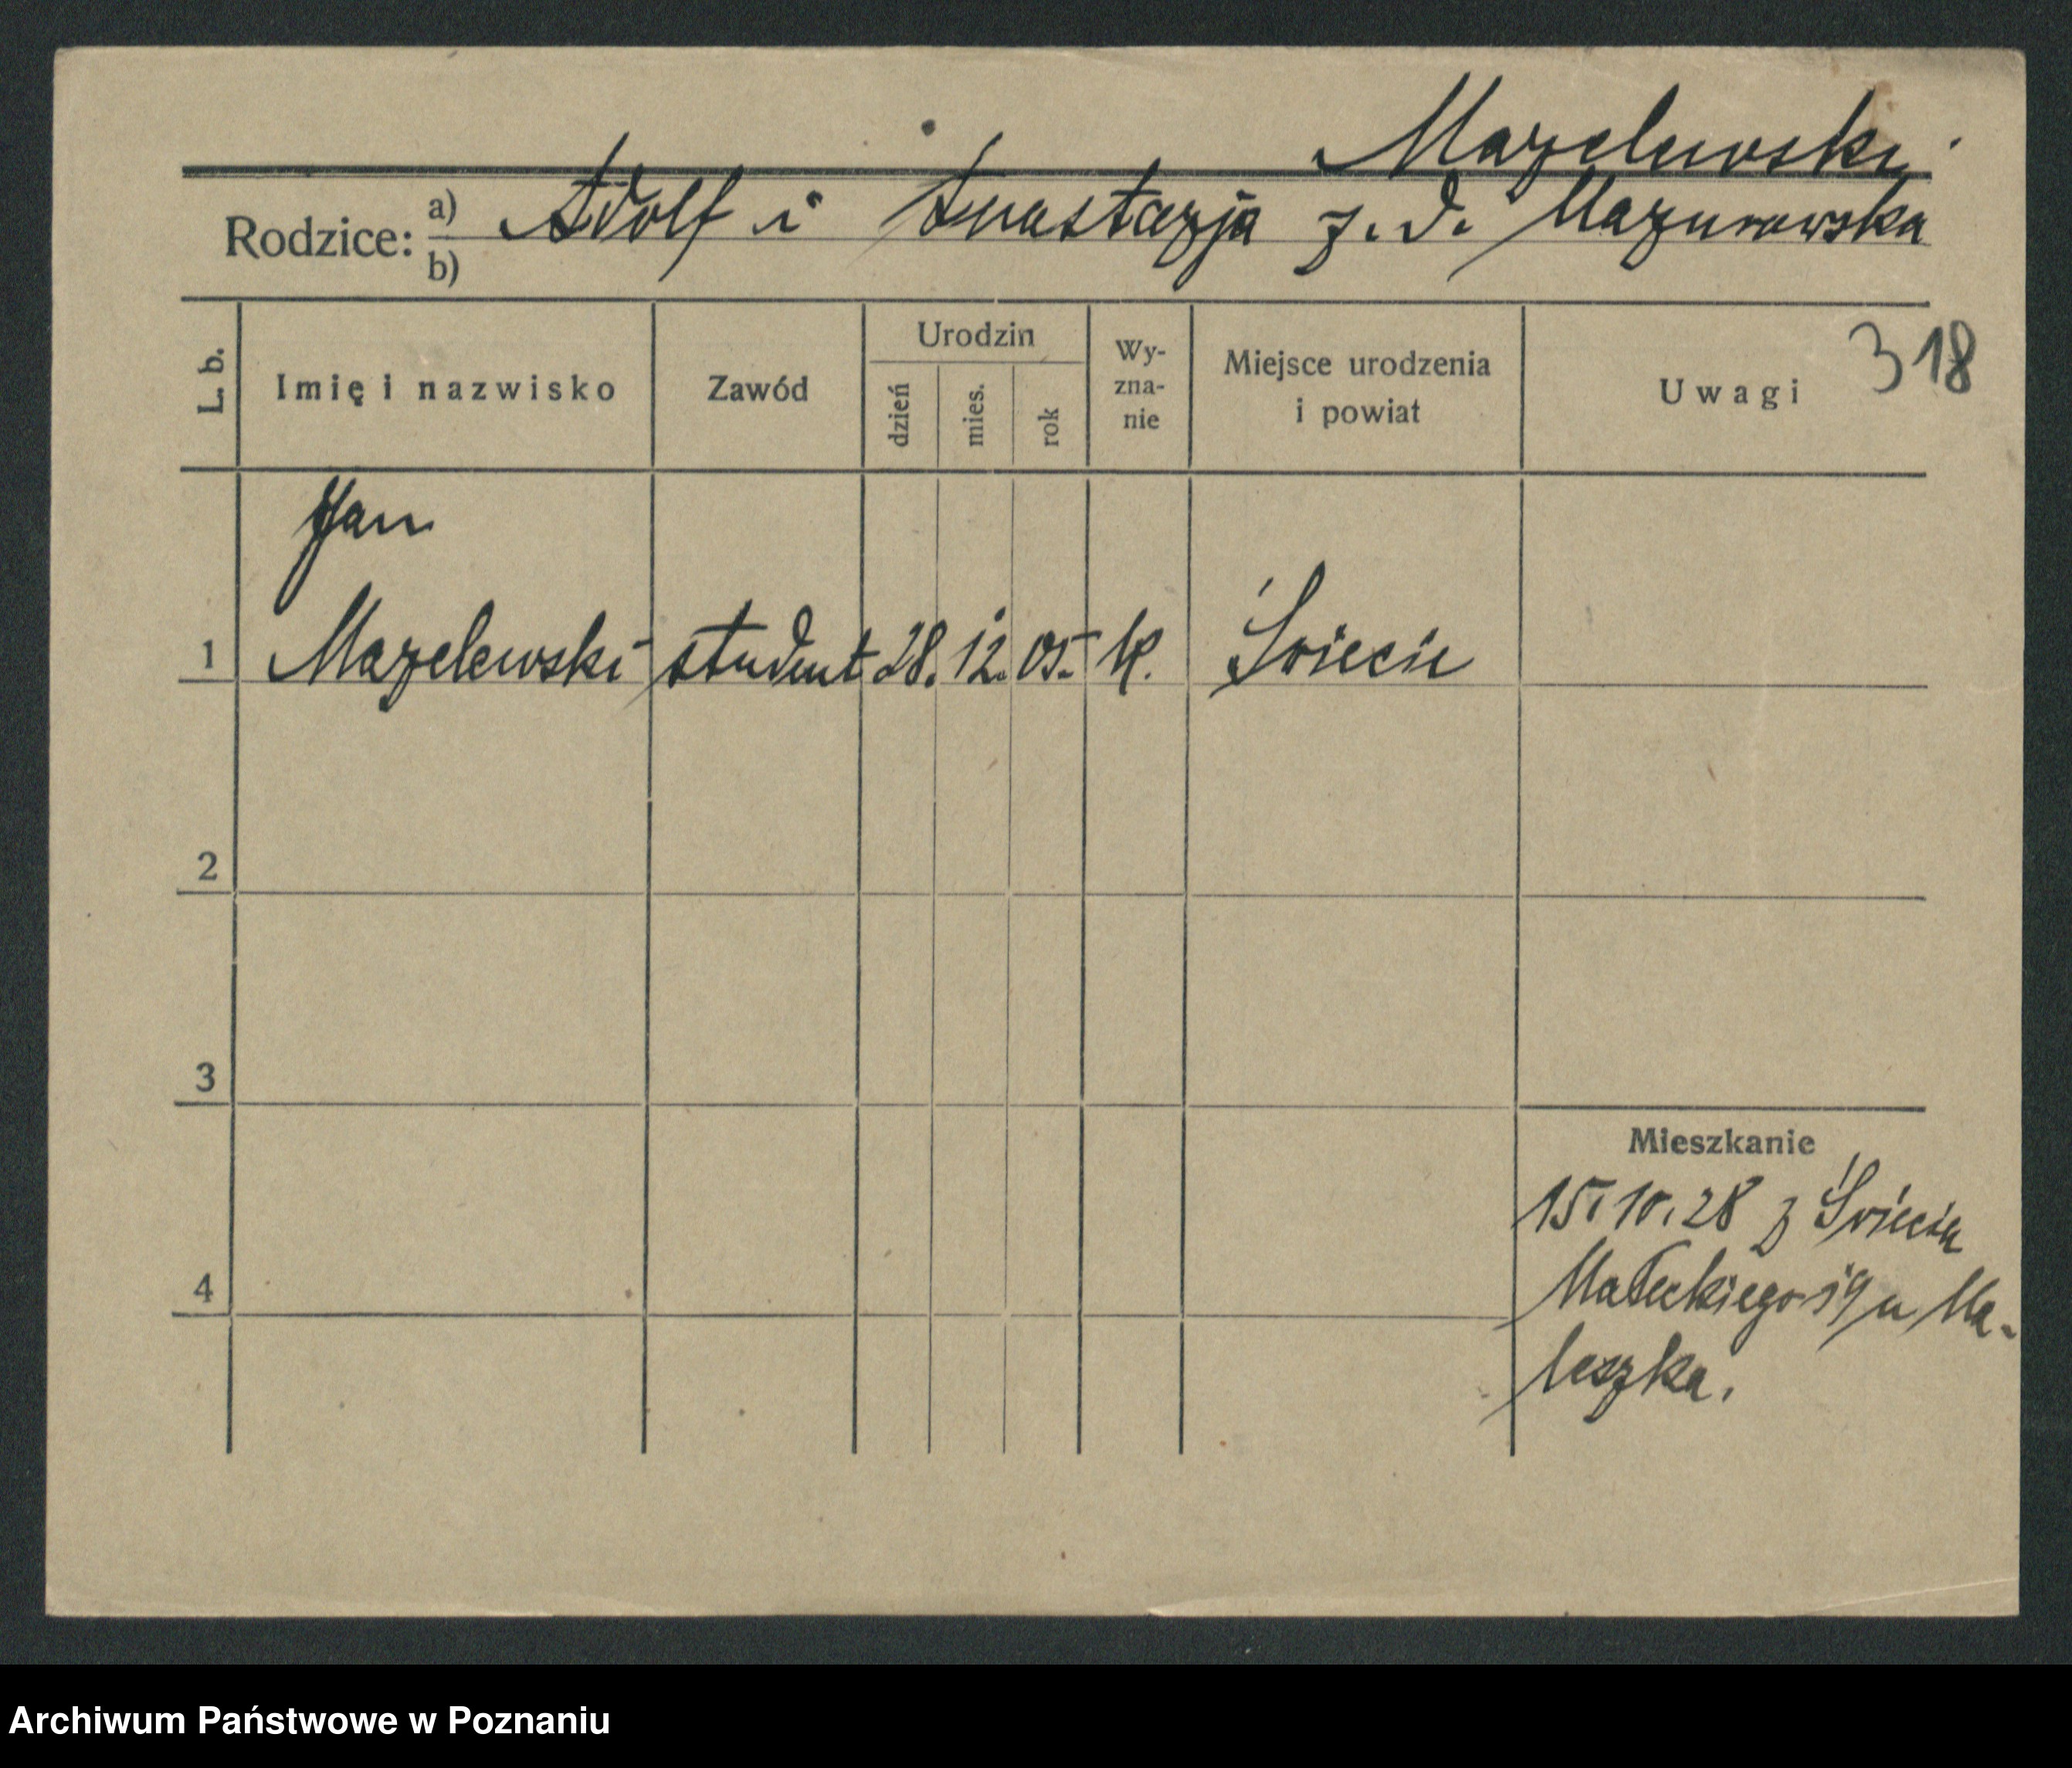 Mazelewski
Rodzice: a) b) Adolf i Anastazja z. d. Mazurowska
L. b. Imię i nazwisko Zawód Urodzin dzień mies. rok Wy-zna-nie Miejsce urodzenia i powiat Uwagi 318
Jan
1 Mazelewski student 28. 12. 05. k. Świecie
2
3
Mieszkanie
15.10.28 z Świecia
4 Małeckiego 19 u Ma-
leszka.
Archiwum Państwowe w Poznaniu